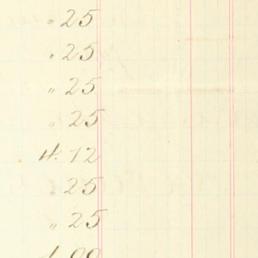 " 25
" 25
" 25
" 25
4. 12
" 25
" 25
1.00